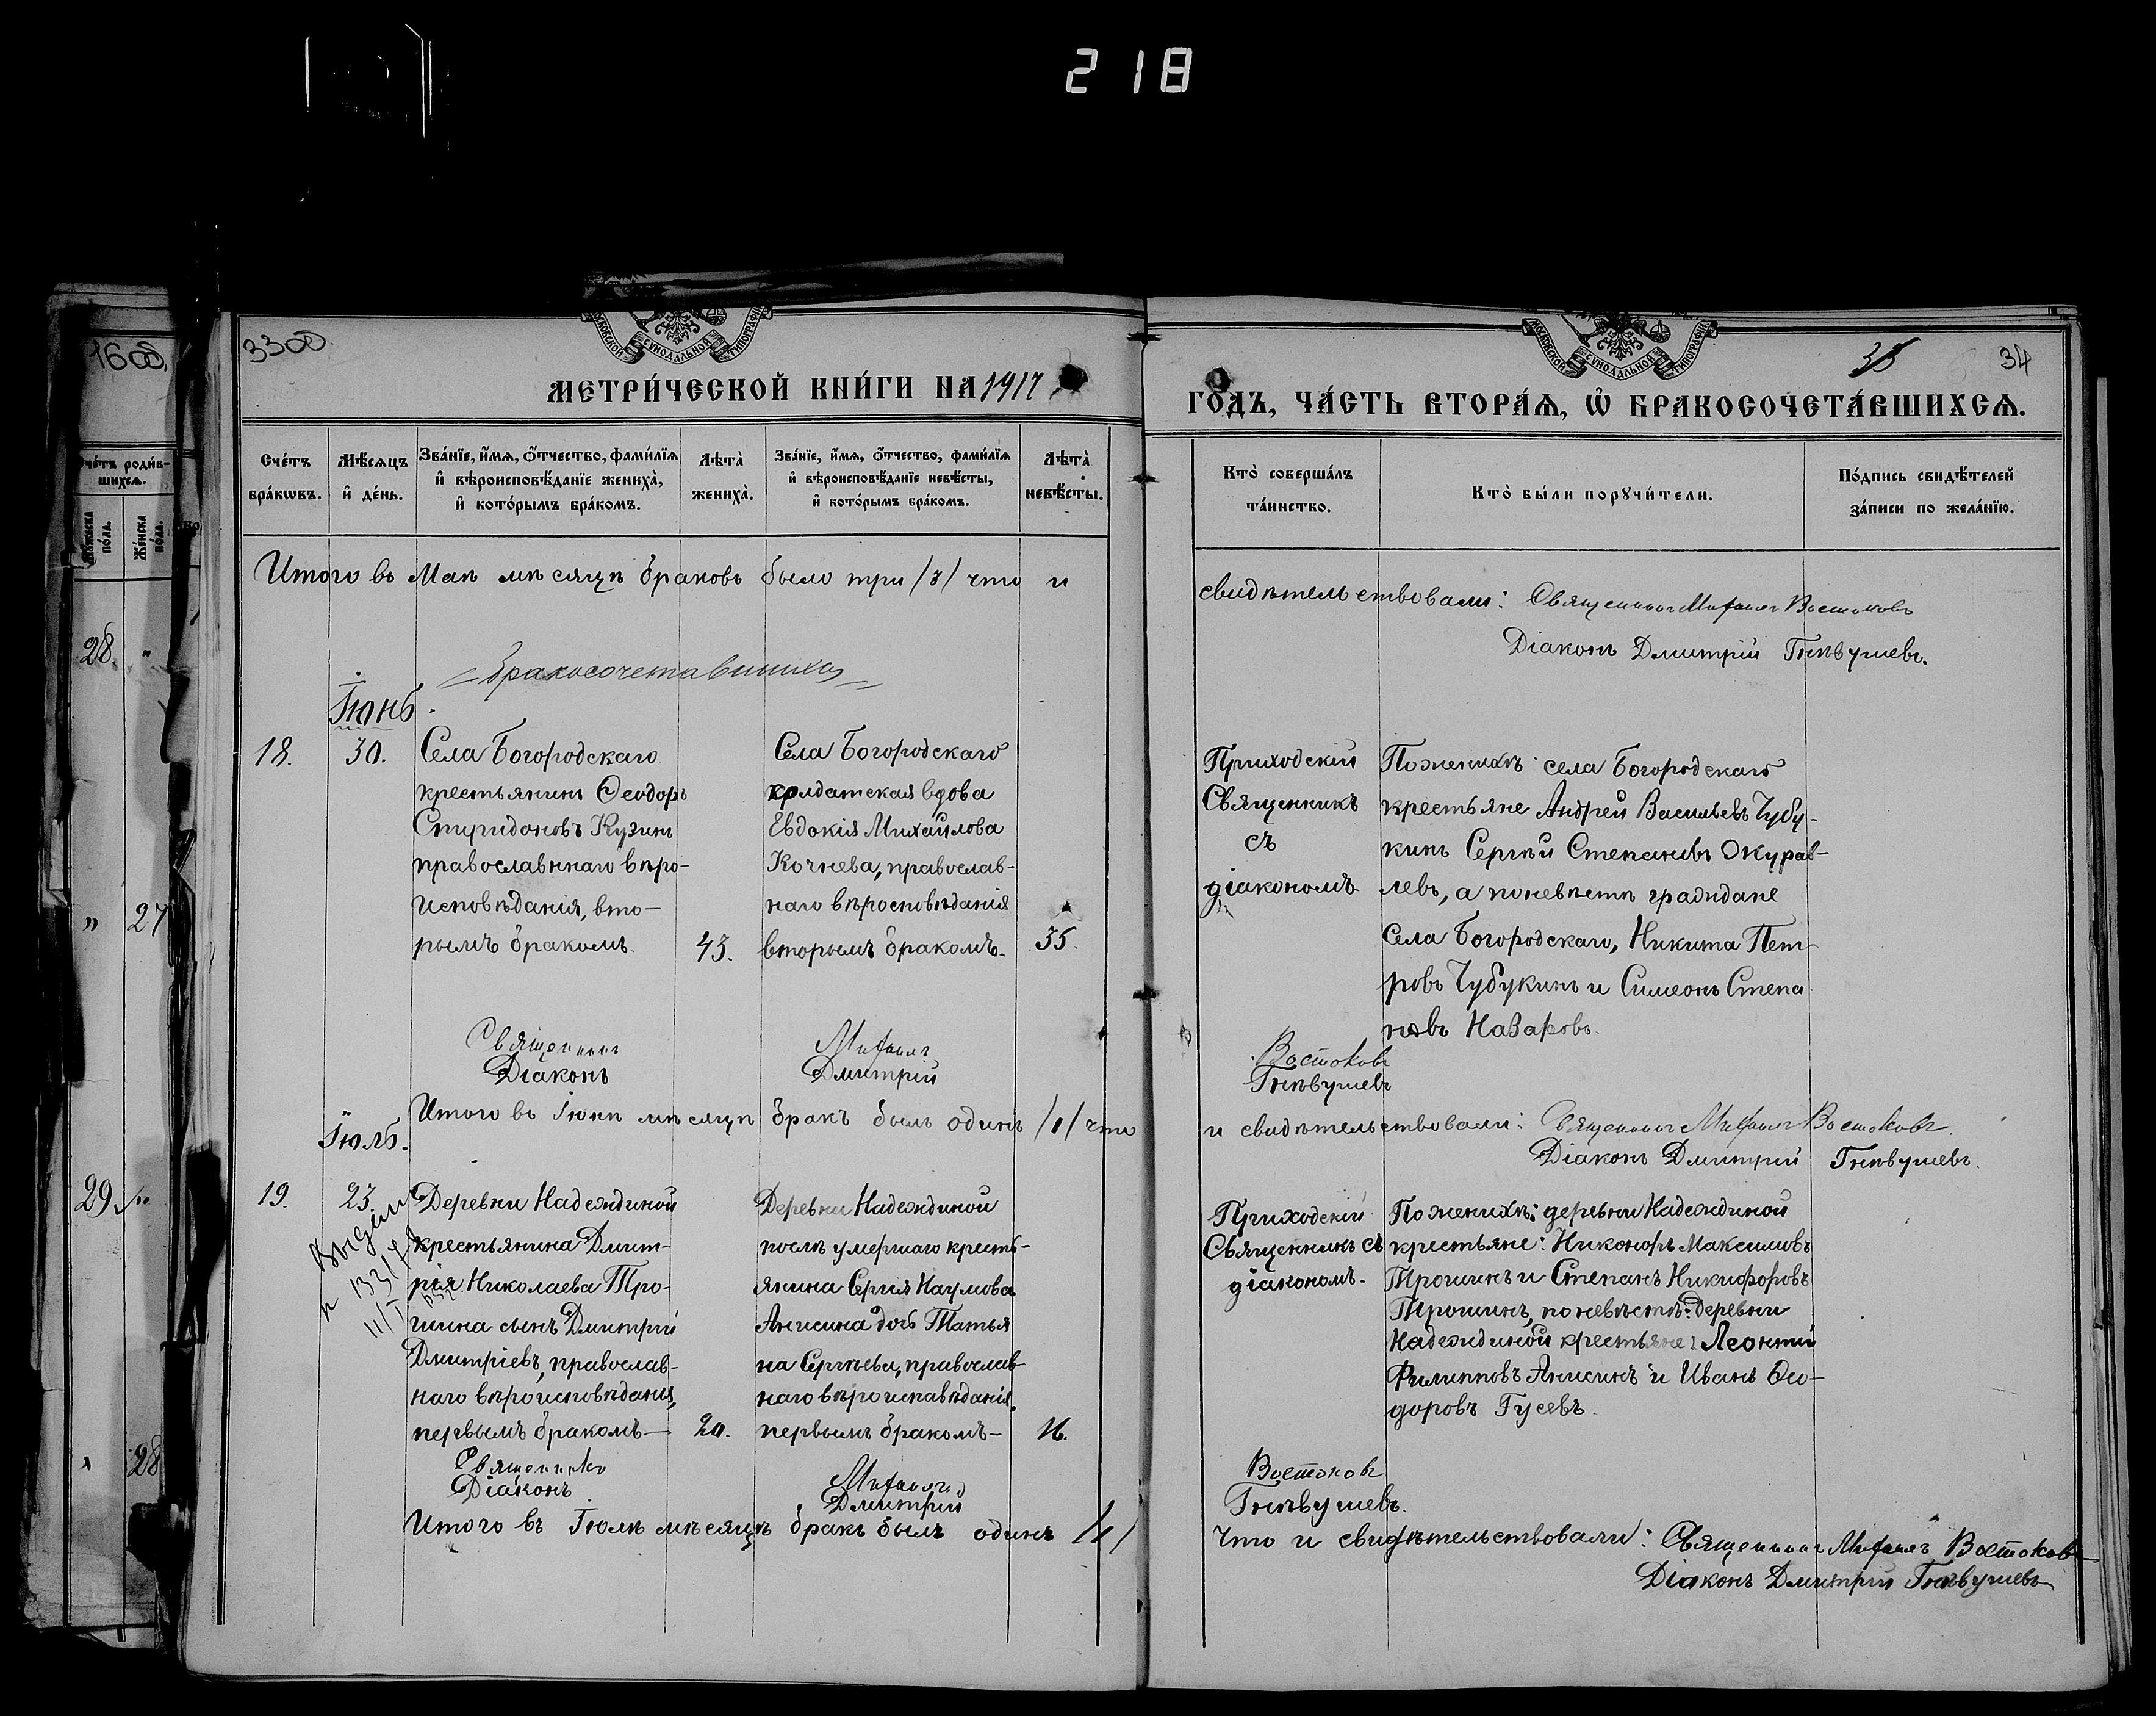 218
1600.
3300
МОСКОВСКОЙ СѴНОДАЛЬНОЙ ТИПОГРАФІИ
МОСКОВСКОЙ СѴНОДАЛЬНОЙ ТИПОГРАФІИ
34
МЕТРИ́ЧЕСКОЙ КНИ́ГИ НА 1917
ГО́ДЪ, ЧА́СТЬ ВТОРА́Ѧ, Ѡ҆ БРАКОСОЧЕТА́ВШИХСѦ.
Сче́тъ роди́в-
шихсѧ.
Мꙋ́жеска
по́ла.
Же́нска
по́ла.
28. "
" 27
29. "
28
Сче́тъ
бра́кѡвъ.
Мѣ́сѧцъ
и҆ де́нь.
Зва́нїе, и҆́мѧ, ѻ҆́тчество, фами́лїѧ
и҆ вѣроисповѣ́данїе жениха̀,
и҆ кото́рымъ бра́комъ.
Лѣта̀
жениха̀.
Зва́нїе, и҆́мѧ, ѻ҆́тчество, фами́лїѧ
и҆ вѣроисповѣ́данїе невѣ́сты,
и҆ кото́рымъ бра́комъ.
Лѣта̀
невѣ́сты.
Кто̀ соверша́лъ
та́инство.
Кто̀ бы́ли порꙋчи́тели.
По́дпись свидѣ́телей
за́писи по жела́нїю.
Итого въ Маѣ мѣсяцѣ браковъ было три /3/ что и
свидѣтельствовали: Священникъ Михаилъ Востоковъ
Діаконъ Дмитрій Гнѣвушевъ.
Бракосочетавшихся
Іюнь.
18.
30.
Села Богородскаго
крестьянинъ Ѳеодоръ
Спиридоновъ Кузинъ
православнаго вѣро-
исповѣданія, вто-
рымъ бракомъ.
43.
Села Богородскаго
солдатская вдова
Евдокія Михайлова
Кочнева, православ-
наго вѣроисповѣданія
вторымъ бракомъ.
35.
Приходскій
Священникъ
съ
діакономъ
По женихѣ: села Богородскаго
крестьяне Андрей Васильевъ Чубу-
кинъ Сергѣй Степановъ Журав-
левъ, а по невѣстѣ граждане
Села Богородскаго, Никита Пет-
ровъ Чубукинъ и Симеонъ Степа
новъ Назаровъ.
Священникъ Михаилъ Востоковъ
Діаконъ Дмитрій Гнѣвушевъ
Итого въ Іюнѣ мѣсяцѣ бракъ былъ одинъ /1/ что
и свидѣтельствовали: Священникъ Михаилъ Востоковъ.
Діаконъ Дмитрій Гнѣвушевъ.
Іюль.
19.
23.
Выдан
Деревни Надеждиной
крестьянина Дмит-
рія Николаева Тро-
шина сынъ Дмитрій
Дмитріевъ, православ-
наго вѣроисповѣданія,
первымъ бракомъ—
20.
Деревни Надеждиной
послѣ умершаго кресть-
янина Сергія Наумова
Анисина дочь Татья
на Сергѣева, православ-
наго вѣроисповѣданія,
первымъ бракомъ—
16.
Приходскій
Священникъ съ
діакономъ.
По женихѣ: деревни Надеждиной
крестьяне: Никоноръ Максимовъ
Трошинъ и Степанъ Никифоровъ
Трошинъ, по невѣстѣ: деревни
Надеждиной крестьяне: Леонтій
Филипповъ Анисинъ и Иванъ Ѳео-
доровъ Гусевъ.
Священникъ Михаилъ Востоковъ
Діаконъ Дмитрій Гнѣвушевъ.
Итого въ Іюлѣ мѣсяцѣ бракъ былъ одинъ /1/
что и свидѣтельствовали: Священникъ Михаилъ Востоковъ
Діаконъ Дмитрій Гнѣвушевъ